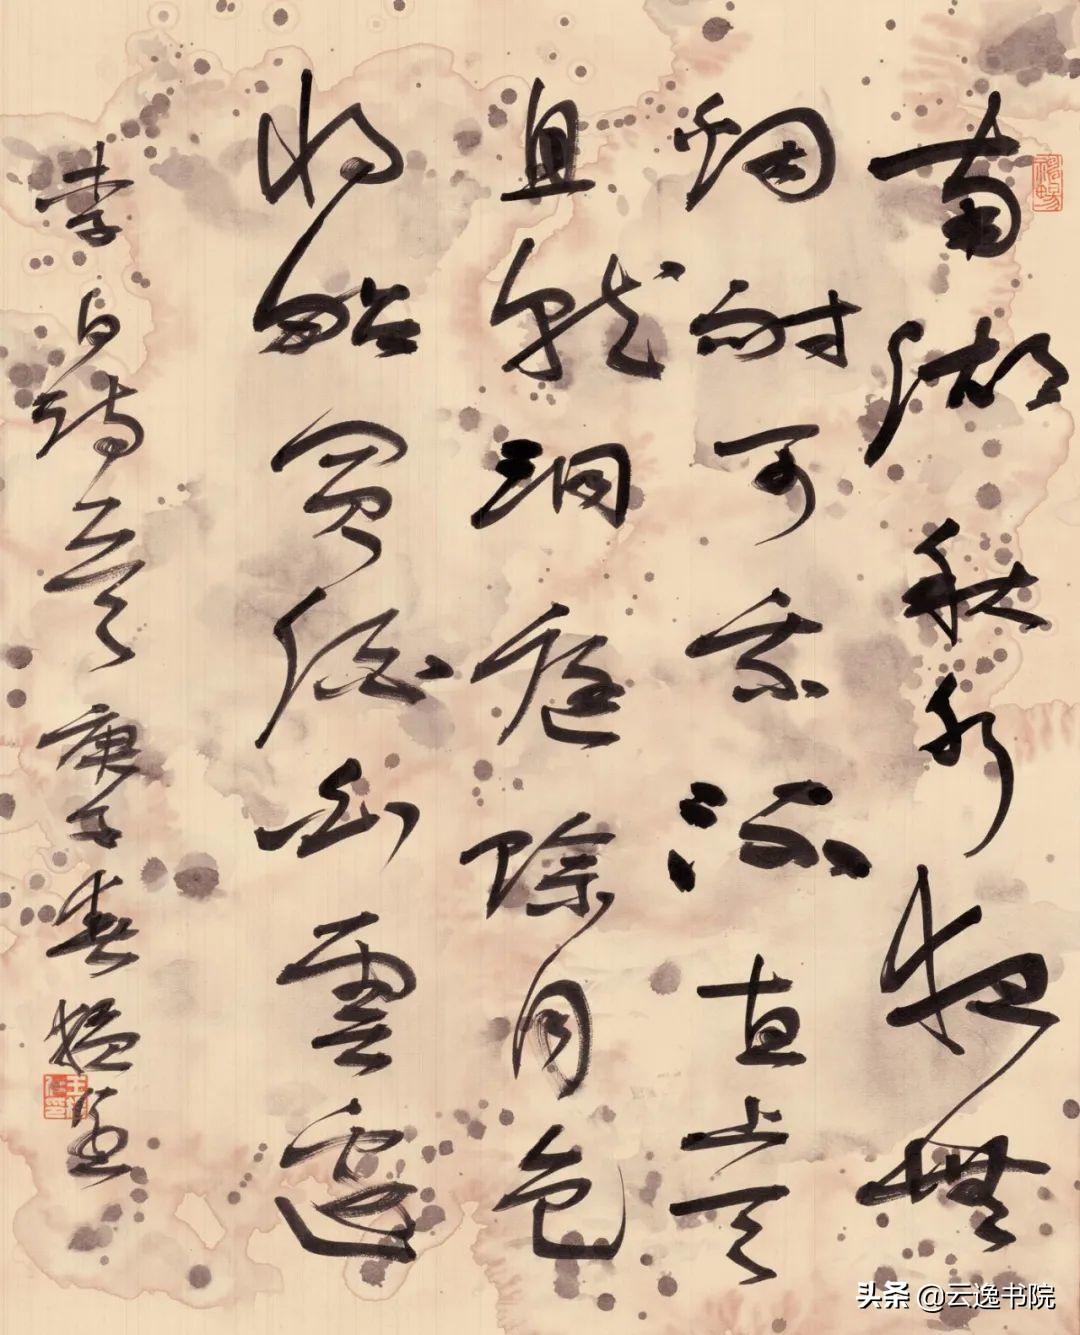 南湖秋水夜無
烟耐可乘流直上天
且就洞庭賒月色
将船買酒白雲邊
李白詩一首 庚子春
头条 @云逸书院